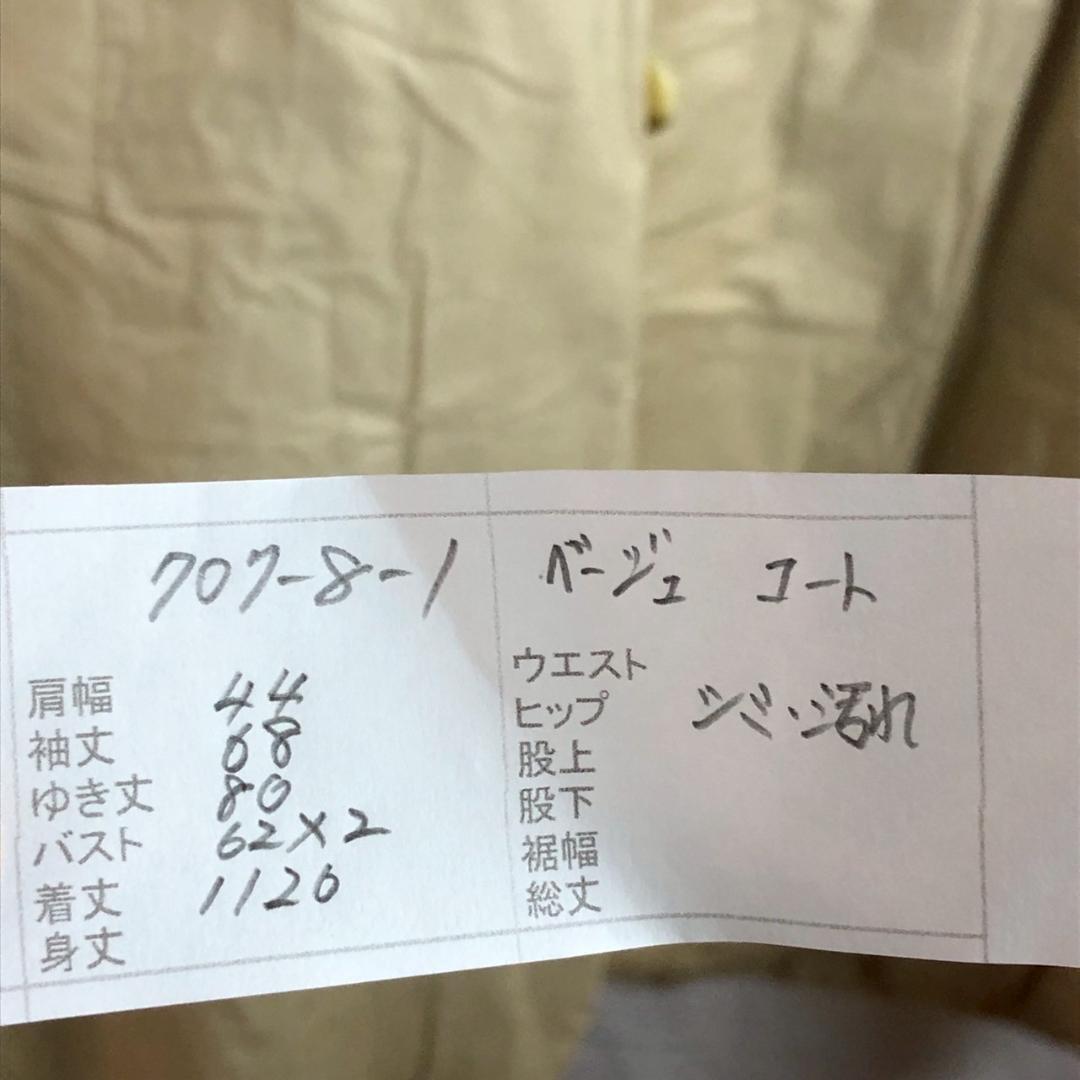 707-8-1
肩幅 44
袖丈 68
ゆき丈 80
バスト 62×2
着丈 1120
身丈
ベージュ コート
ウエスト
ヒップ シミ・汚れ
股上
股下
裾幅
総丈